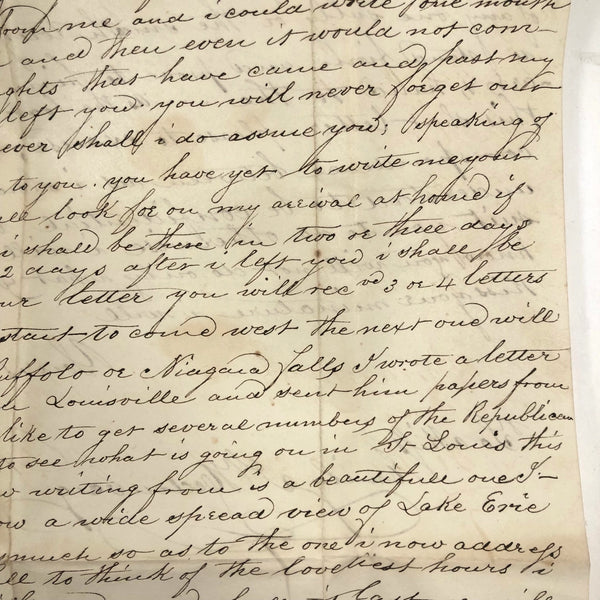 from me and i could write one month
and then even it would not com-
ghts that have came and past my
left you. you will never forget our
ever shall i do assure you; speaking of
to you. you have yet to write me your
look for on my arrival at home if
i shall be there in two or three days
2 days after i left you i shall be
ur letter you will recvd 3 or 4 letters
start to come west the next one will
uffolo or Niagara falls I wrote a letter
Louisville and sent him papers from
like to get several numbers of the Republican
to see what is going on in St Louis this
w writing from is a beautifull one I-
ow a wide spread view of Lake Erie
much so as to the one i now address
ll to think of the loveliest hours i